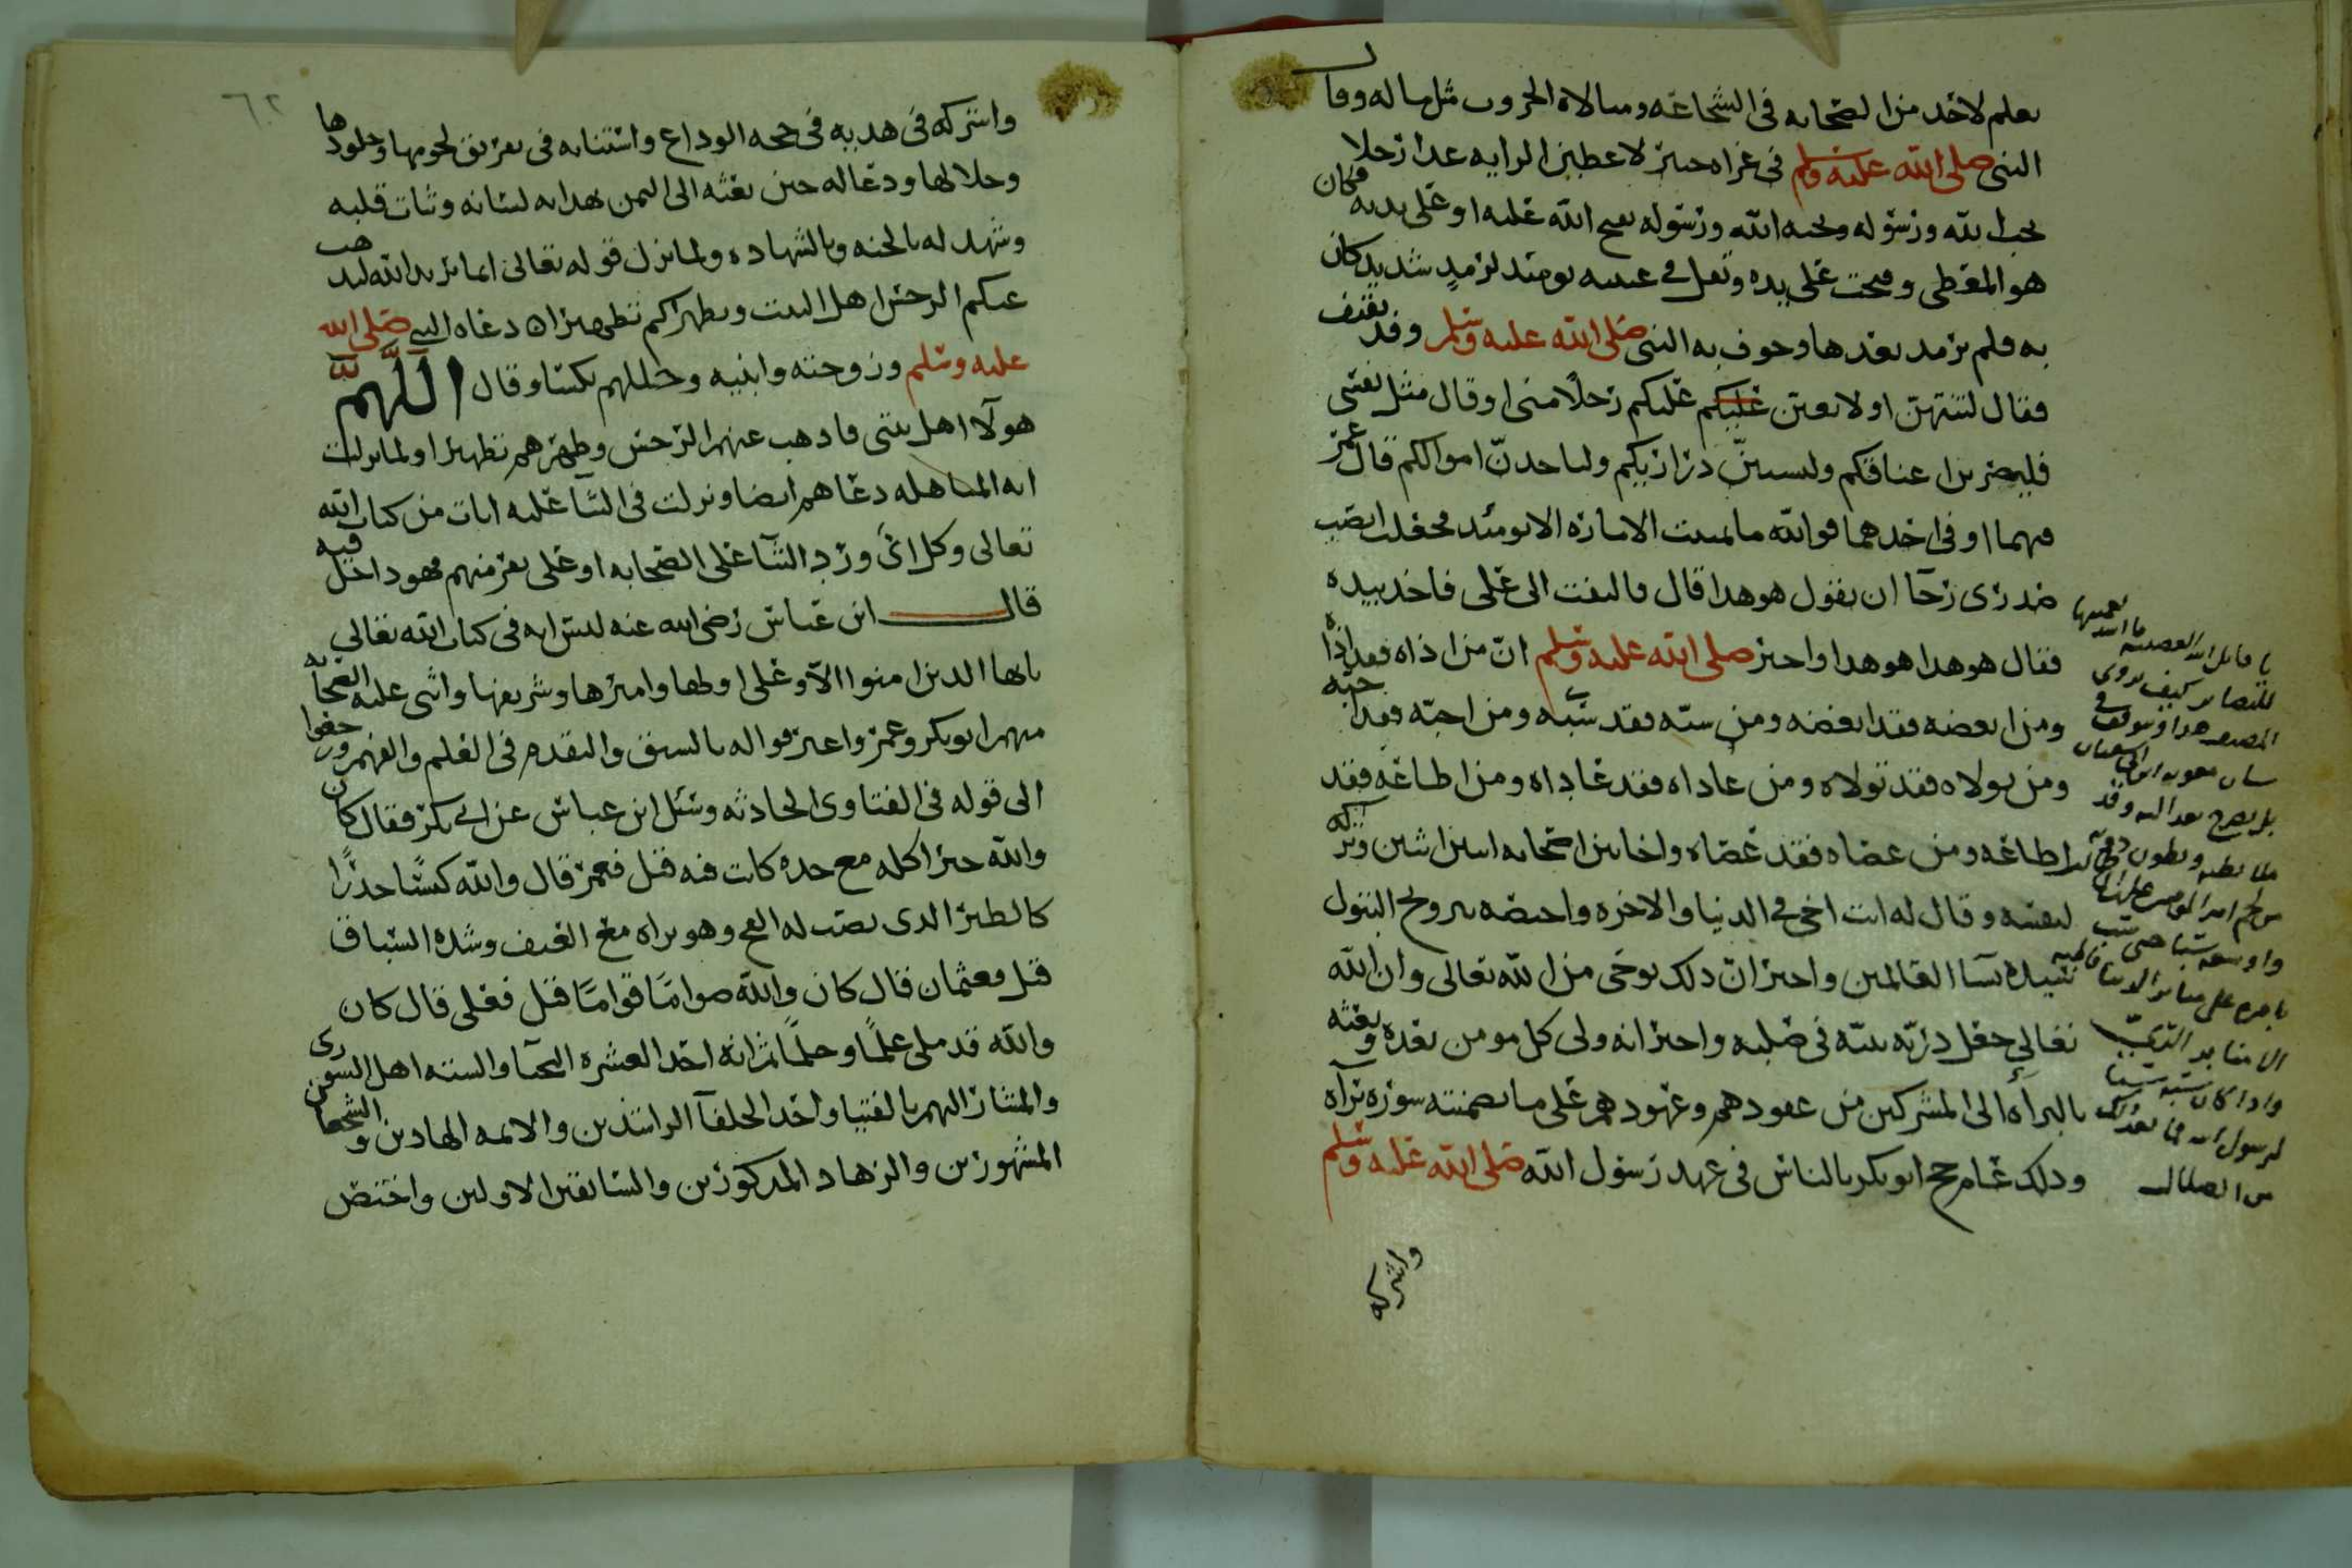 يعلم لاحد من الصحابه في الشجاعه ومبالاه الحروب مثل ماله وقال
النبي صلى الله عليه وسلم في غزاه خيبر لاعطين الرايه غدا رجلا
يحب الله ورسوله ويحبه الله ورسوله يفتح الله عليه او على يديه فكان
هو المعطى وفتحت على يده وتفل في عينيه يومئد لرمدٍ شديد كان
به فلم يرمد بعدها وخوف به النبي صلى الله عليه وسلم وفد ثقيف
فقال لتنتهن او لابعثن عليكم عليكم رجلًا مني او قال مثل نفسي
فليضربن اعناقكم وليسبينّ دراريكم ولياخدنّ اموالكم قال عمر
فهما او في احدهما فوالله ما تمنيت الاماره الا يومئد فجعلت انصب
صدري رجآ ان يقول هو هدا قال فالتفت الى علي فاخد بيده
فقال هو هدا هو هدا واخبر صلى الله عليه وسلم انّ من اداه فقد اداه
ومن ابغضه فقد ابغضه ومن سبّه فقد سبّه ومن احبّه فقد احبّه
ومن تولاه فقد تولاه ومن عاداه فقد عاداه ومن اطاعه فقد
اطاعه ومن عصاه فقد عصاه واخا بين اصحابه اثنين اثنين وتركه
لنفسه وقال له انت اخي في الدنيا والاخره واختصه بتزويج البتول
سيده نسآ العالمين واخبر انّ دلك بوحي من الله تعالى وان الله
تعالى جعل دريّه نبيّه في صلبه واخبر انه ولي كل مومن بعده وبعثه
بالبرأه الى المشركين من عقودهم وعهودهم على ما تضمنته سوره برآه
ودلك عام حج ابو بكر بالناس في عهد رسول الله صلى الله عليه وسلم
واشركه
يا قاتل الله العصبيه ما اشد
للبصاير كيف يروي
المصنف هدا وسوقف في
شان معويه ابن ابي سفيان
بل يصرح
من الضلال
٦٢
واشركه في هديه في حجه الوداع واستنابه في تفريق لحومها وجلودها
وجلالها ودعا له حين بعثه الى اليمن بهدايه لسانه وثبات قلبه
وشهد له بالجنه وبالشهاده ولما نزل قوله تعالى انما يريد الله ليدهب
عنكم الرجس اهل البيت ويطهركم تطهيرا دعاه النبي صلى الله
عليه وسلم وزوجته وابنيه وجللهم بكسا وقال اللَّهمَّ
هولآ اهل بيتي فادهب عنهم الرجس وطهرهم تطهيرا ولما نزلت
ايه المباهله دعاهم ايضا ونزلت في الثنا عليه ايات من كتاب الله
تعالى وكل اي ورد الثنآ على الصحابه او على نفر منهم فهو داخل فيه
قال ابن عباس رضي الله عنه ليس ايه في كتاب الله تعالى
يايها الدين امنوا الاّ وعلي اولها واميرها وشريفها واثنى عليه الصحابه
منهم ابو بكر وعمر واعترفوا له بالسبق والتقدم في العلم والفهم ورجعوا
الى قوله في الفتاوى الحادثه وسئل ابن عباس عن ابي بكر فقال كان
والله خيرا كله مع حده كانت فيه قيل فعمر قال والله كيسًا حدرًا
كالطير الدي نصب له الفخ وهو يراه مع العنف وشده السباق
قيل فعثمان قال كان والله صوامًا قوامًا قيل فعلي قال كان
والله قد ملي علمًا وحلمًا ثم انه احد العشره النجبآ والسته اهل الشورى
والمشار اليهم بالفتيا واحد الخلفآ الراشدين والايمه الهادين والشجعان
المشهورين والزهاد المدكورين والسابقين الاولين واختص